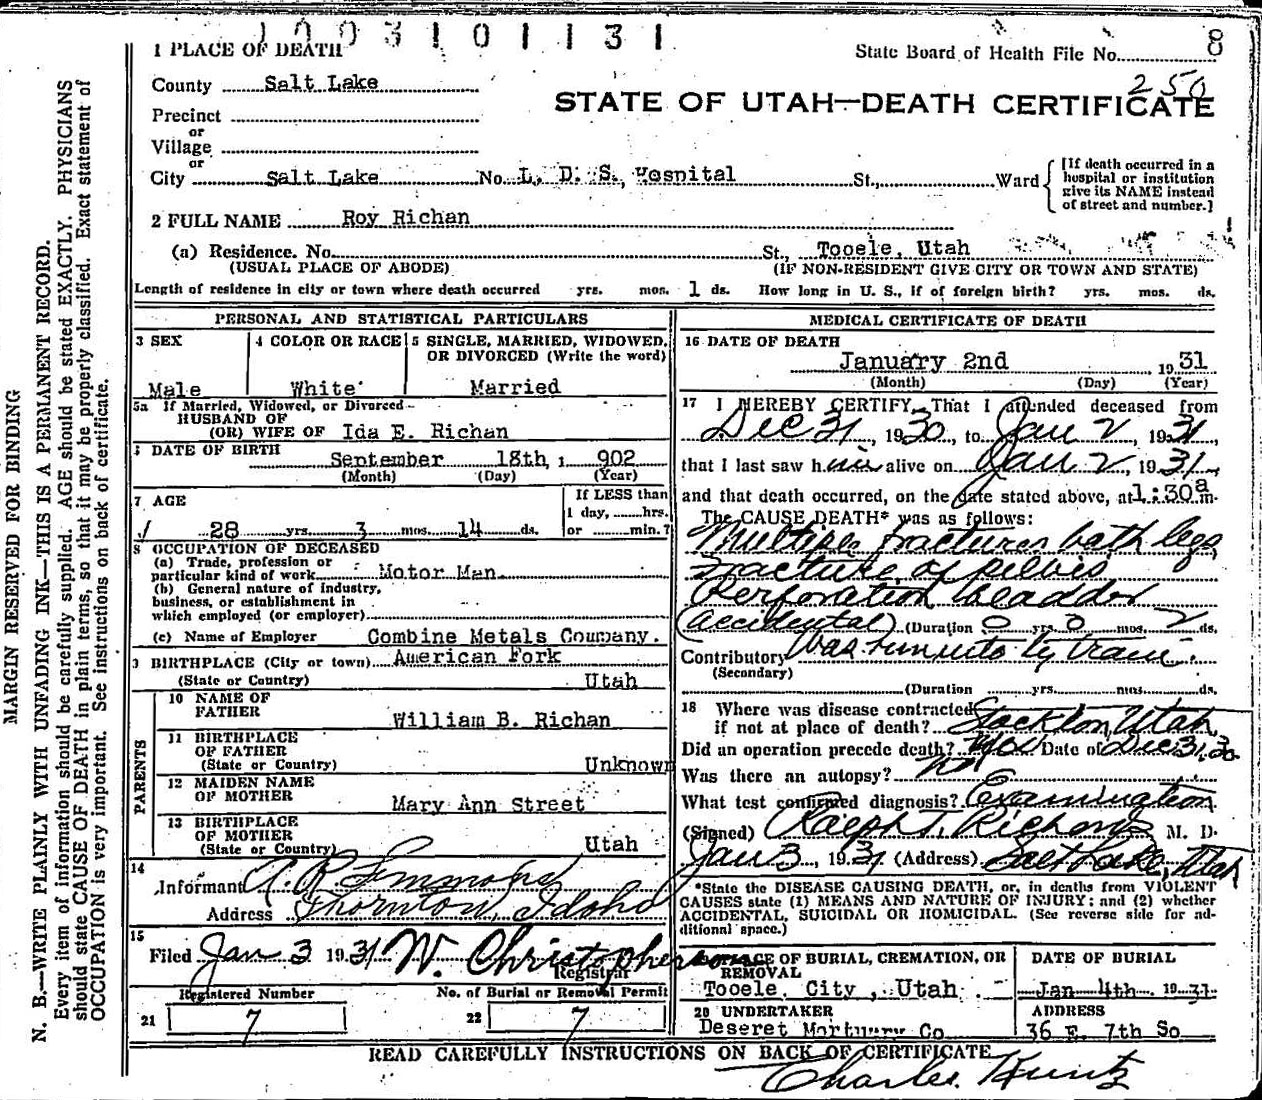 1003101131
1 PLACE OF DEATH
State Board of Health File No. 8
250
County Salt Lake
STATE OF UTAH—DEATH CERTIFICATE
Precinct
or
Village
or
City Salt Lake No. L. D. S. Hospital St., Ward
[If death occurred in a hospital or institution give its NAME instead of street and number.]
2 FULL NAME Roy Richan
(a) Residence. No. St., Tooele, Utah
(USUAL PLACE OF ABODE) (IF NON-RESIDENT GIVE CITY OR TOWN AND STATE)
Length of residence in city or town where death occurred yrs. mos. 1 ds. How long in U. S., if of foreign birth? yrs. mos. ds.
PERSONAL AND STATISTICAL PARTICULARS
3 SEX
Male
4 COLOR OR RACE
White
5 SINGLE, MARRIED, WIDOWED, OR DIVORCED (Write the word)
Married
5a If Married, Widowed, or Divorced
HUSBAND OF
(OR) WIFE OF Ida E. Richan
DATE OF BIRTH September 18th, 1902
(Month) (Day) (Year)
7 AGE
28 yrs. 3 mos. 14 ds.
If LESS than
1 day, hrs.
or min.?
8 OCCUPATION OF DECEASED
(a) Trade, profession or
particular kind of work Motor Man.
(b) General nature of industry,
business, or establishment in
which employed (or employer)
(c) Name of Employer Combine Metals Company.
BIRTHPLACE (City or town) American Fork
(State or Country) Utah
PARENTS
10 NAME OF
FATHER William B. Richan
11 BIRTHPLACE
OF FATHER
(State or Country) Unknown
12 MAIDEN NAME
OF MOTHER Mary Ann Street
13 BIRTHPLACE
OF MOTHER
(State or Country) Utah
14
Informant A. R. Simmons
Address Thornton, Idaho
15
Filed Jan 3 1931 W. Christopherson
Registrar
Registered Number
21 7
No. of Burial or Removal Permit
22 7
MEDICAL CERTIFICATE OF DEATH
16 DATE OF DEATH
January 2nd 1931
(Month) (Day) (Year)
17 I HEREBY CERTIFY, That I attended deceased from
Dec 31, 1930, to Jan 2, 1931,
that I last saw him alive on Jan 2, 1931,
and that death occurred, on the date stated above, at 1:30a m.
The CAUSE DEATH* was as follows:
Multiple fractures both legs
Fracture of pelvis
Perforation bladder
(Accidental) (Duration 0 yrs. 0 mos. 2 ds.
Contributory Was run into by train.
(Secondary)
(Duration yrs. mos. ds.
18 Where was disease contracted
if not at place of death? Stockton, Utah
Did an operation precede death? Yes Date of Dec 31, 30
Was there an autopsy? No
What test confirmed diagnosis? Examination
(Signed) Ralph T. Richards M. D.
Jan 3, 1931 (Address) Salt Lake, Utah
*State the DISEASE CAUSING DEATH, or, in deaths from VIOLENT
CAUSES state (1) MEANS AND NATURE OF INJURY; and (2) whether
ACCIDENTAL, SUICIDAL OR HOMICIDAL. (See reverse side for additional space.)
PLACE OF BURIAL, CREMATION, OR
REMOVAL
Tooele, City, Utah.
DATE OF BURIAL
Jan 4th 1931
20 UNDERTAKER
Deseret Mortuary Co
ADDRESS
36 E. 7th So
READ CAREFULLY INSTRUCTIONS ON BACK OF CERTIFICATE
Charles Kuntz
MARGIN RESERVED FOR BINDING
N. B.—WRITE PLAINLY WITH UNFADING INK—THIS IS A PERMANENT RECORD.
Every item of information should be carefully supplied. AGE should be stated EXACTLY. PHYSICIANS
should state CAUSE OF DEATH in plain terms, so that it may be properly classified. Exact statement of
OCCUPATION is very important. See instructions on back of certificate.